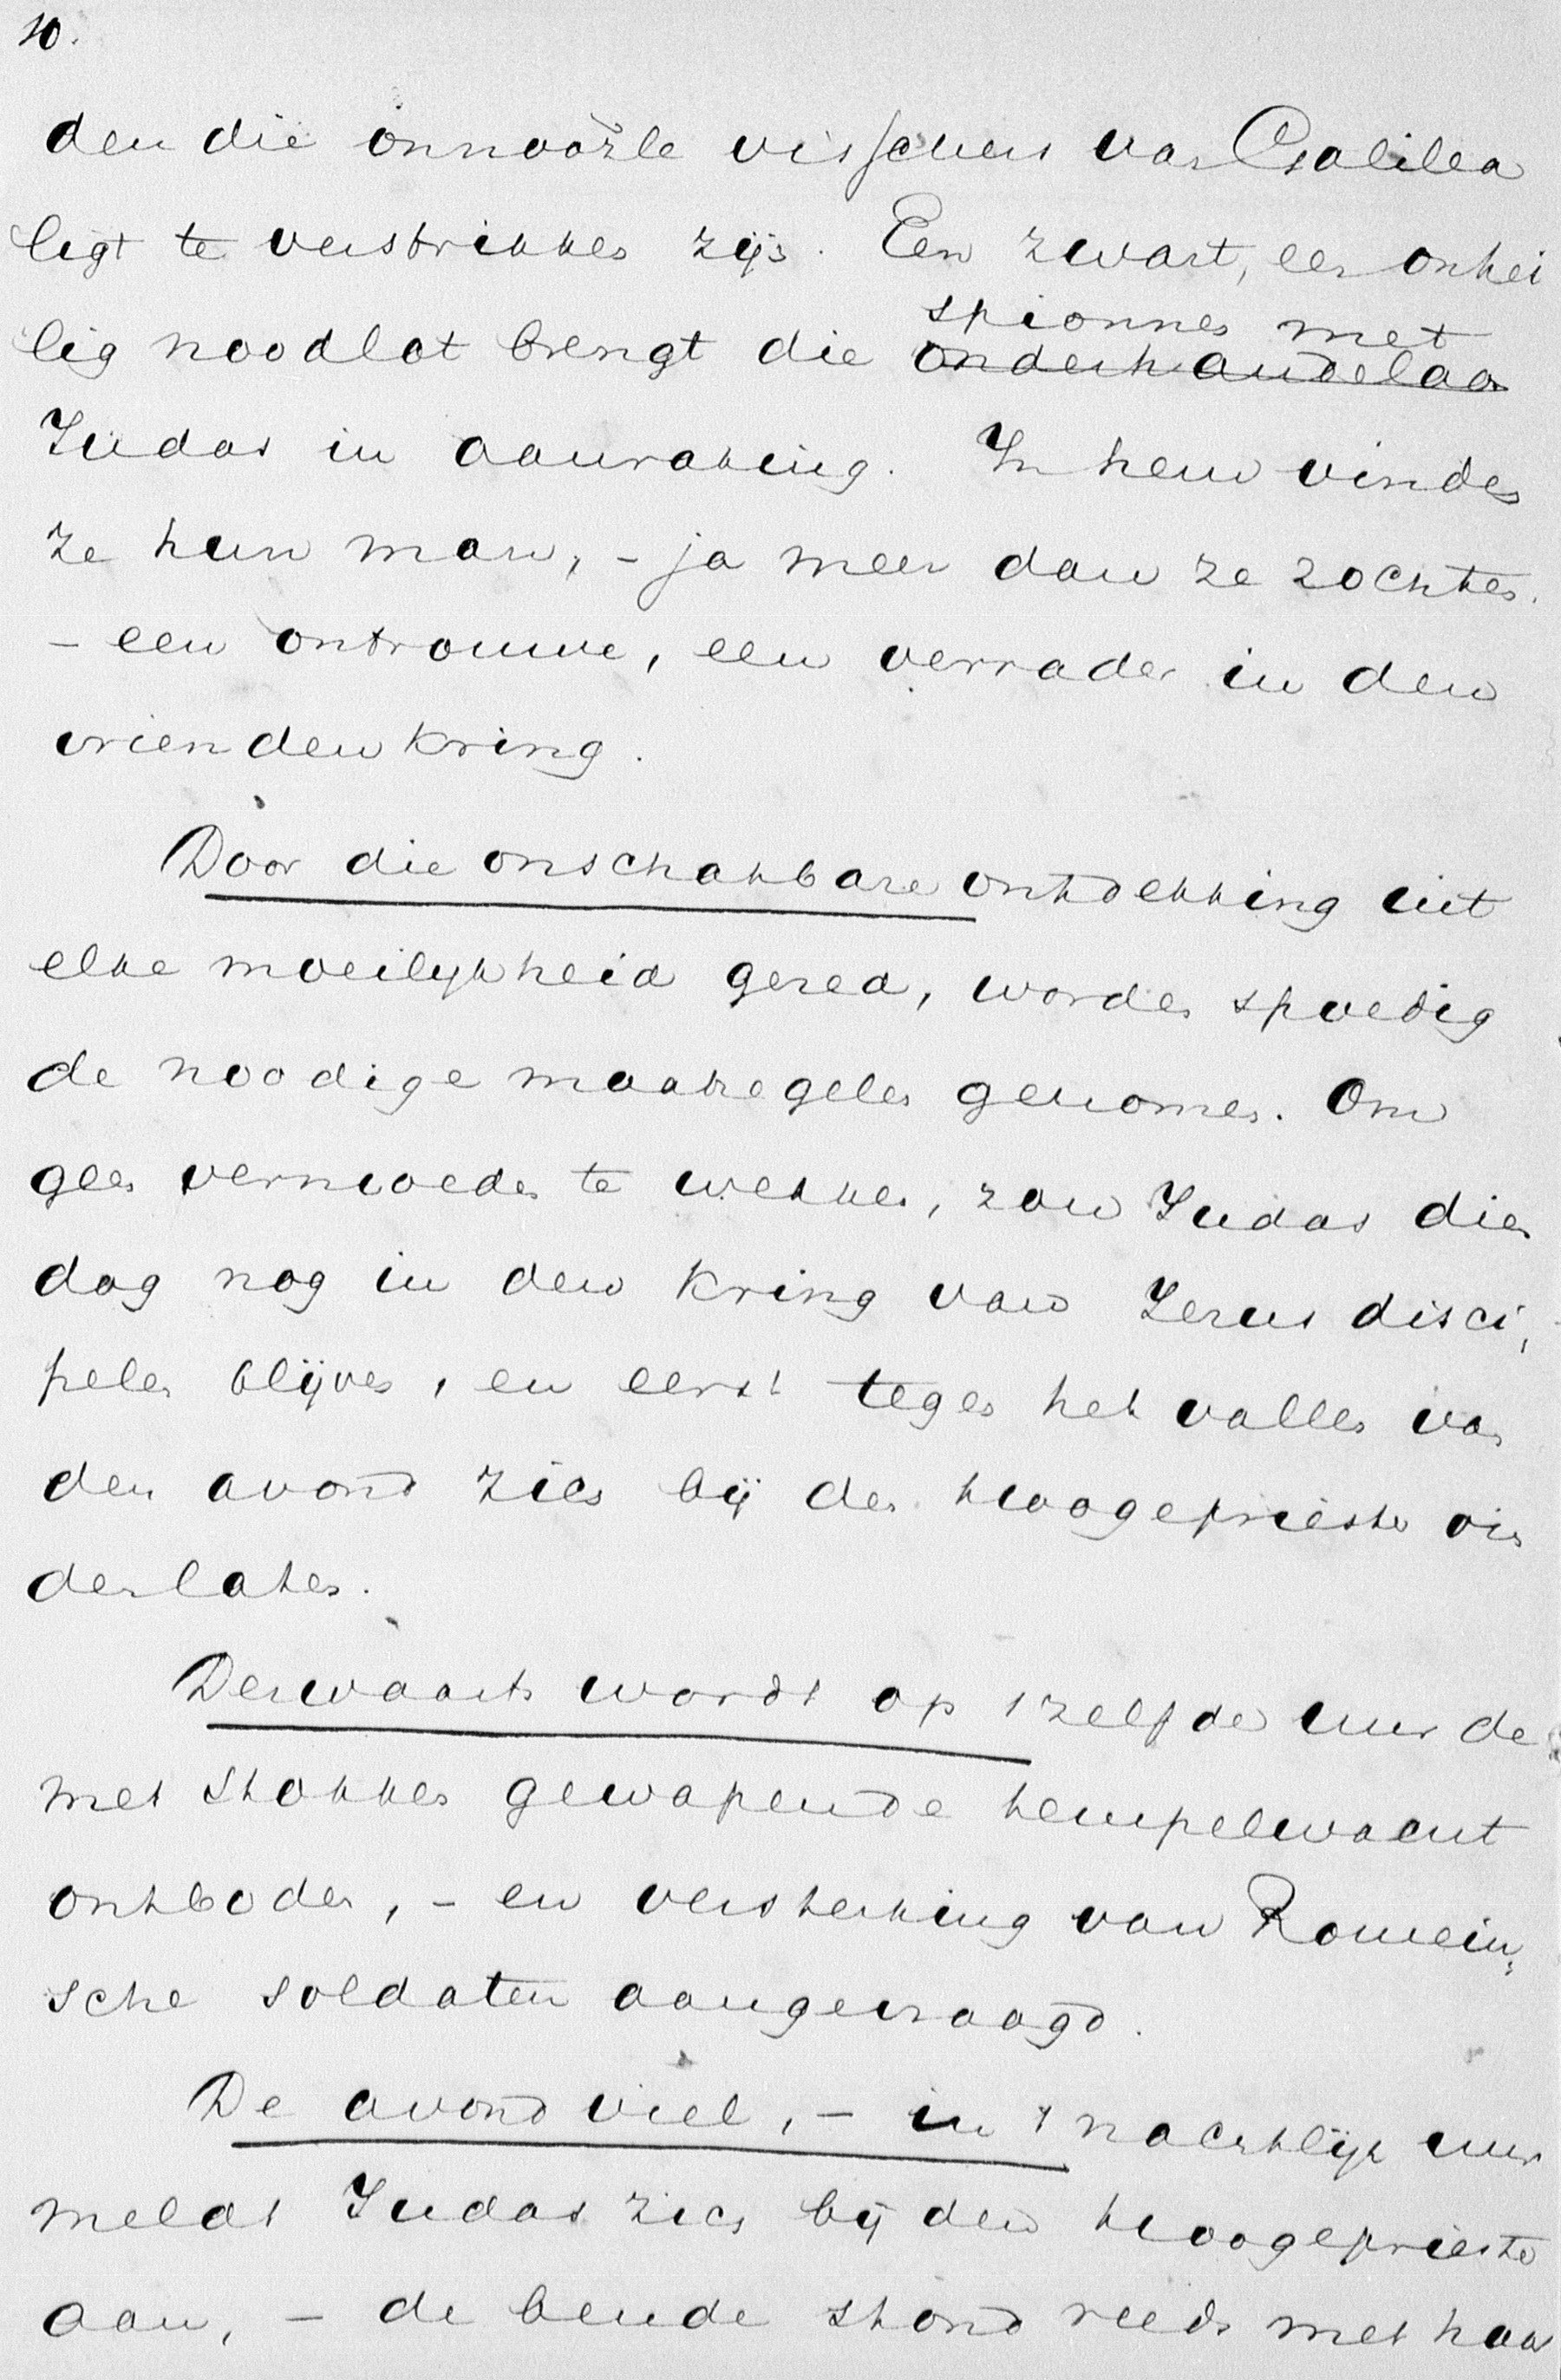 10.
den die onnoozle visschers van Galilea
ligt te verstrikken zijn. Een zwart, een onhei
spionnen met
lig noodlot brengt die onderhandelaar
Judas in aanraking. In hem vinden
ze hun man, - ja meer dan ze zochten.
- een ontrouwe, een verrader in den
vriendenkring.
Door die onschatbare ontdekking uit
elke moeilijkheid gered, worden spoedig
de noodige maatregelen genomen. Om
geen vermoeden te wekken, zou Judas dien
dag nog in den kring van Jezus disci,
pelen blijven, en eerst tegen het vallen van
den avond zich bij den hoogepriester vin
den laten.
Derwaarts wordt op 't zelfde uur de
met stokken gewapende tempelwacht
ontboden, - en versterking van Romein,
sche soldaten aangevraagd.
De avond viel, - in 't nachtlijk uur
meldt Judas zich bij den hoogepriester
aan, - de bende stond reeds met haar